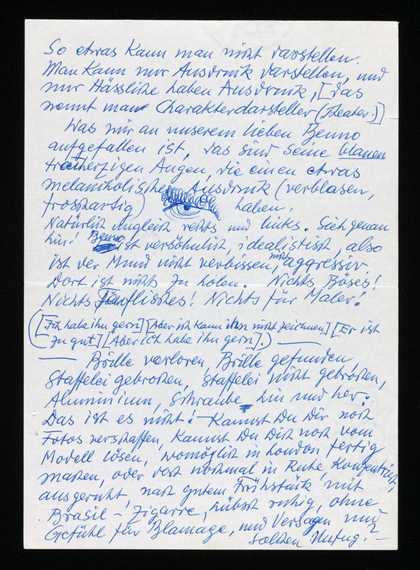 So etwas kann man nicht darstellen.
Man kann nur Ausdruck darstellen, und
nur Hässliche haben Ausdruck, [das
nennt man Charakterdarsteller (Theater.)]
Was mir an unserem lieben Benno
aufgefallen ist, das sind seine blauen
treuherzigen Augen, die einen etwas
melancholischen Ausdruck (verblasen,
frostartig) haben.
Natürlich ungleich rechts und links. Sieh genau
hin! Benno ist versöhnlich, idealistisch, also
ist der Mund nicht verbissen, nicht aggressiv.
Dort ist nichts zu holen. Nichts Böses!
Nichts Teuflisches! Nichts für Maler!
([Ich habe ihn gern] [Aber ich kann ihn nicht zeichnen] [Er ist
zu gut] [Aber ich habe ihn gern].) —
— Brille verloren, Brille gefunden
Staffelei gebrochen, Staffelei nicht gebrochen,
Aluminium, Schraube hin und her.
Das ist es nicht! — Kannst Du Dir noch
Fotos verschaffen, kannst Du Dich noch vom
Modell lösen, womöglich in London fertig
machen, oder dort nochmal in Ruhe konzentriert,
ausgeruht nach gutem Frühstück mit
Brasil-Zigarre, hübsch ruhig, ohne
Gefühl für Blamage, und Versagen und
solchen Unfug. —